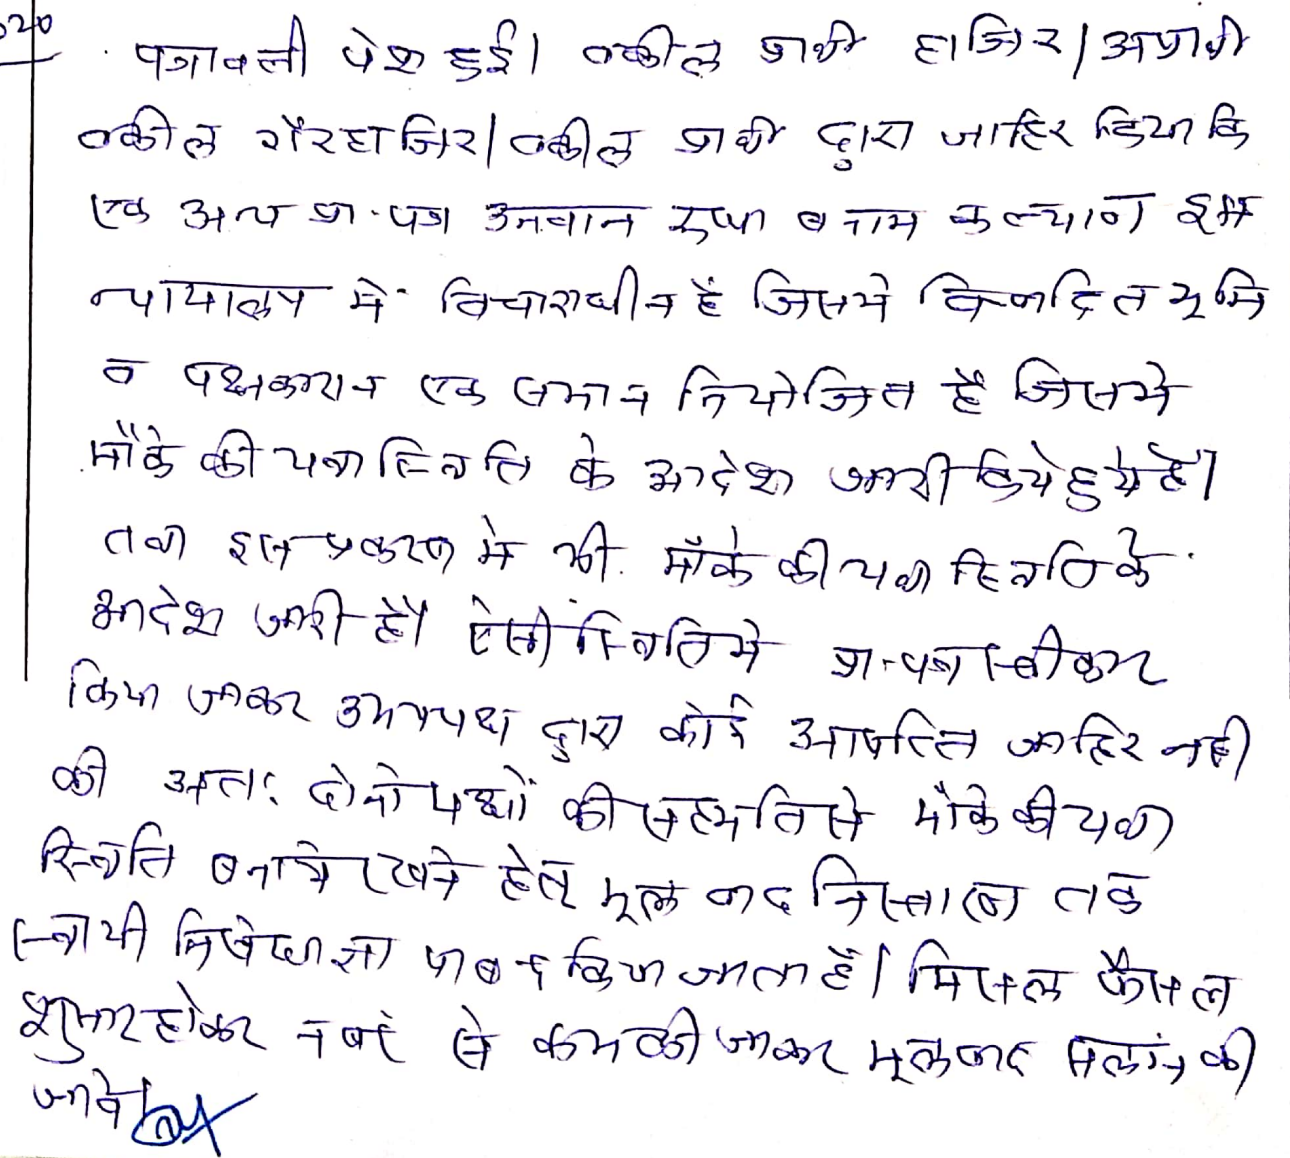 020
पत्रावली पेश हुई। वकील प्रार्थी हाजिर। अप्रार्थी
वकील गैरहाजिर। वकील प्रार्थी द्वारा जाहिर किया कि
एक अन्य प्रा. पत्र उनवान रूपा बनाम कल्याण इस
न्यायालय में विचाराधीन हैं जिसमे विवादित भूमि
व पक्षकारान एक समान नियोजित हैं जिसमे
मौके की यथा स्थिति के आदेश जारी किये हुये है।
तथा इस प्रकरण मे भी मौके की यथा स्थिति के
आदेश जारी है। ऐसी स्थिति मे प्रा. पत्र स्वीकार
किया जाकर उभयपक्ष द्वारा कोई आपत्ति जाहिर नही
की अतः दोनो पक्षों की सहमति से मौके की यथा
स्थिति बनाये रखने हेतु मूल वाद निस्तारण तक
स्थायी निषेधाज्ञा पाबन्द किया जाता हैं। मिसल फैसल
शुमार होकर नम्बर से कम की जाकर मूलवाद सलंग्न की
जावे।